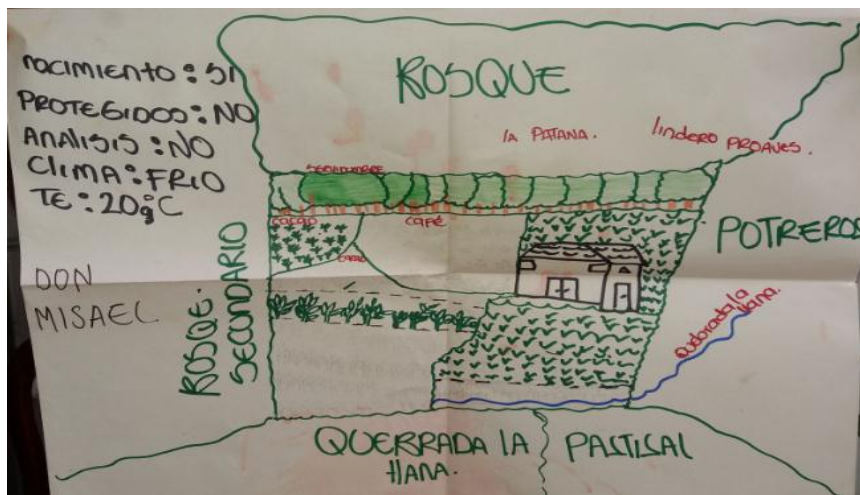 nacimiento: SI
PROTEGIDOS: NO
ANALISIS: NO
Clima: FRIO
TE: 20g°C
DON
MISAEL
BOSQUE
la PITANA.
lindero PROAVES.
cacao
CAFÉ
cacao
POTREROS
BOSQUE.
SECUNDARIO
Quebrada la
llana.
QUEBRADA lA
llANA.
PASTISAL